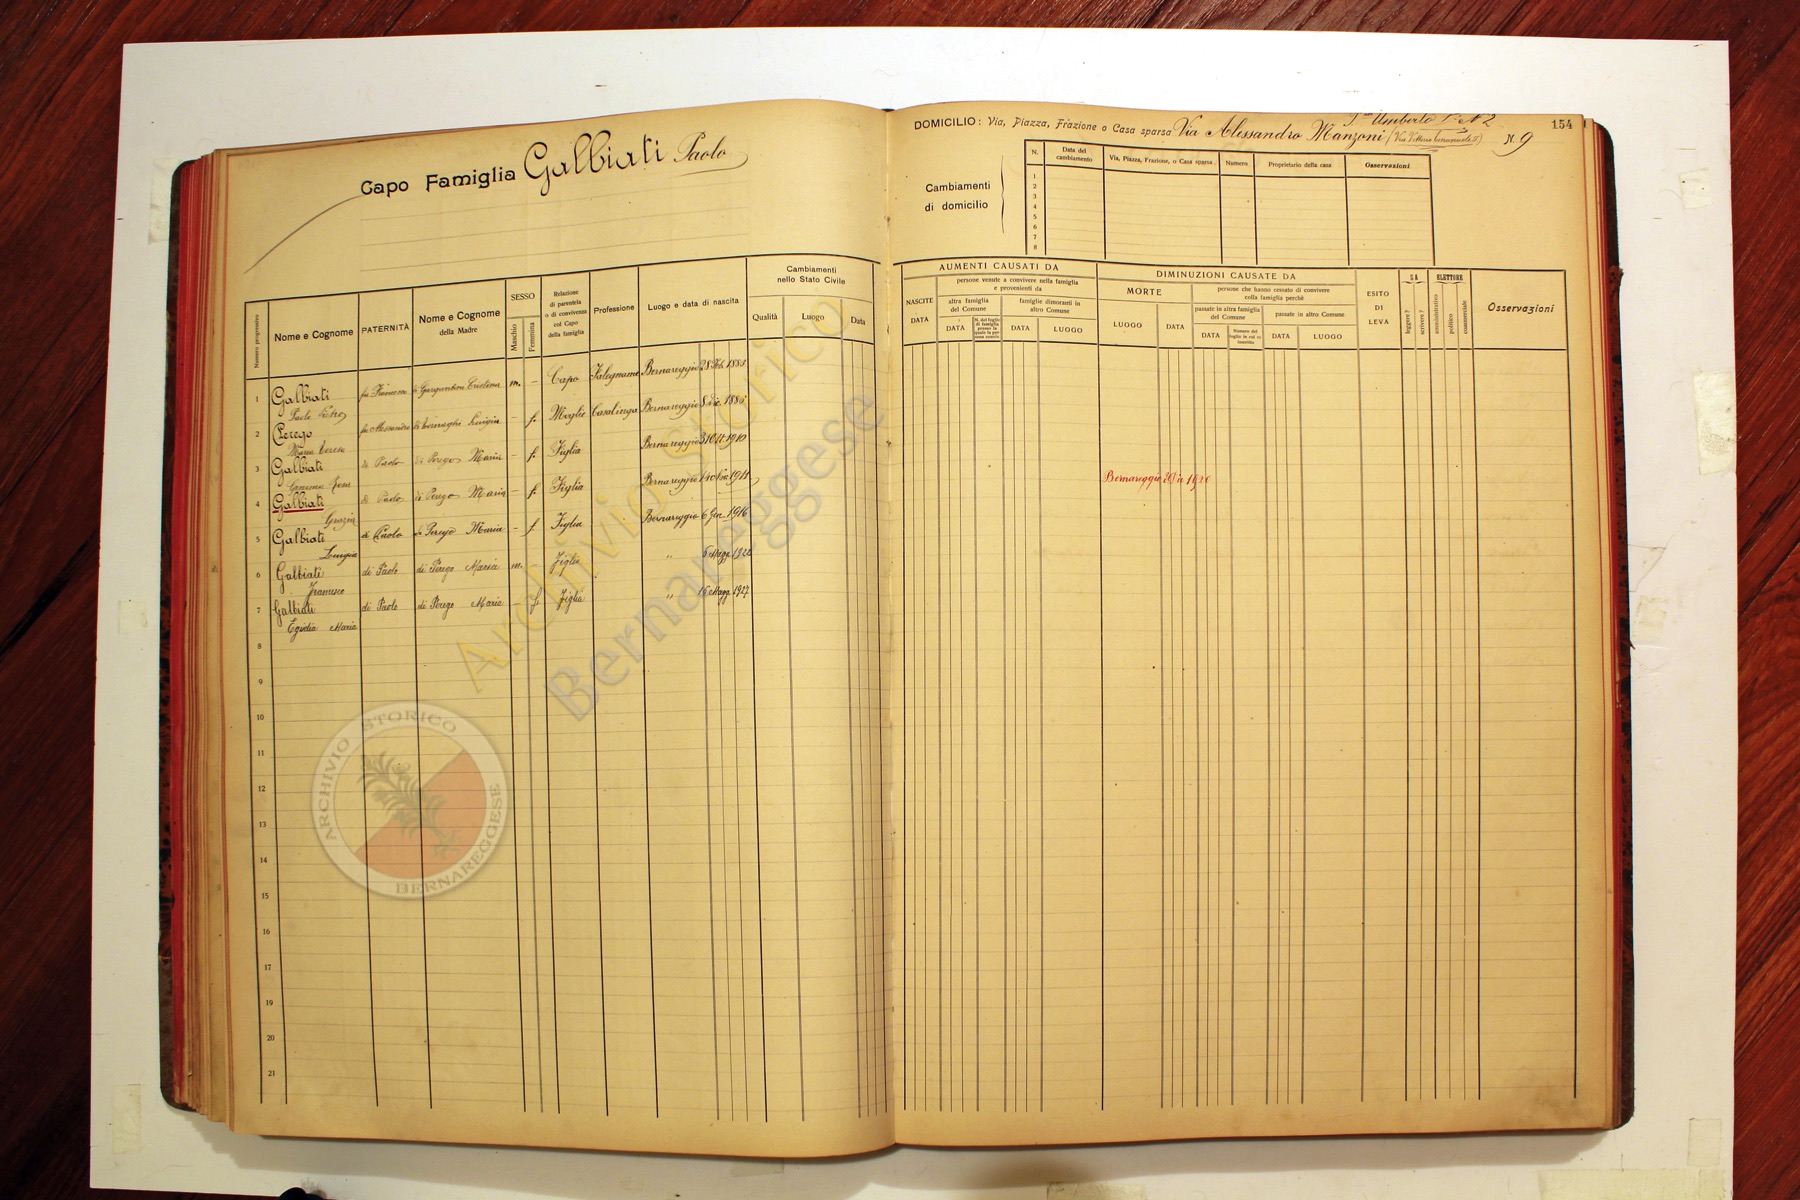 Capo Famiglia Galbiati Paolo
Numero progressivo
Nome e Cognome
PATERNITÀ
Nome e Cognome
della Madre
SESSO
Maschio
Femmina
Relazione
di parentela
o di convivenza
col Capo
della famiglia
Professione
Luogo e data di nascita
Cambiamenti
nello Stato Civile
Qualità
Luogo
Data
1 Galbiati fu Francesco di Cristina m. – Capo Falegname Bernareggio 28 1885
Paolo
2 Perego fu Alessandro Luigia – f. Moglie Casalinga Bernareggio 8 dic. 1885
Maria Teresa
3 Galbiati di Paolo di Perego Maria – f. Figlia Bernareggio 3 Ott. 1910
Rosa
4 Galbiati di Paolo di Perego Maria – f. Figlia Bernareggio 1911
Grazia
5 Galbiati di Paolo di Perego Maria – f. Figlia Bernareggio 6 Gen. 1916
Luigia
6 Galbiati di Paolo di Perego Maria m. – Figlio " 6 Magg. 1922
Francesco
7 Galbiati di Paolo di Perego Maria – f. Figlia " 16 Magg. 1927
Egidia Maria
8
9
10
11
12
13
14
15
16
17
18
19
20
21
154
Umberto I° N 2
DOMICILIO: Via, Piazza, Frazione o Casa sparsa Via Alessandro Manzoni (Via Vittorio Emanuele II) N. 9
Cambiamenti
di domicilio
N.
Data del
cambiamento
Via, Piazza, Frazione, o Casa sparsa
Numero
Proprietario della casa
Osservazioni
1
2
3
4
5
6
7
8
AUMENTI CAUSATI DA
NASCITE
DATA
persone venute a convivere nella famiglia
e provenienti da
altra famiglia
del Comune
DATA
N. del foglio
di famiglia
presso la
quale la per-
sona convive
famiglie dimoranti in
altro Comune
DATA
LUOGO
DIMINUZIONI CAUSATE DA
MORTE
LUOGO
DATA
persone che hanno cessato di convivere
colla famiglia perchè
passate in altra famiglia
del Comune
DATA
Numero del
foglio in cui va
inscritto
passate in altro Comune
DATA
LUOGO
ESITO
DI
LEVA
SA
leggere?
scrivere?
ELETTORE
amministrativo
politico
commerciale
Osservazioni
Bernareggio
Archivio Storico
Bernareggese
ARCHIVIO STORICO
BERNAREGGESE